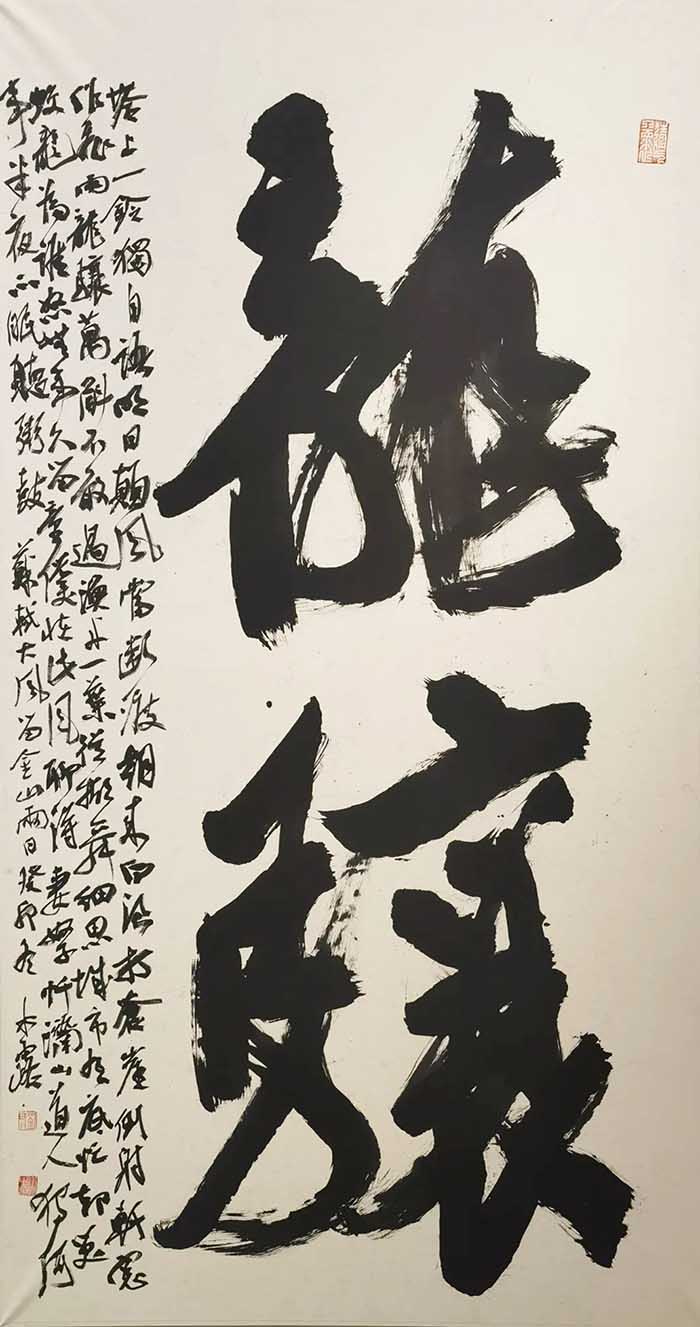 龍驤
塔上一鈴獨自語明日顛風當斷渡朝來白浪打倉崖倒射軒窗
作飛雨龍驤萬斛不敢過漁舟一葉從掀舞細思城市有底忙却笑
蛟龍為誰怒無事久留童僕怪此風聊得妻孥許灊山道人獨何
事半夜不眠聽粥鼓 蘇軾大風留金山兩日 癸卯冬 木露